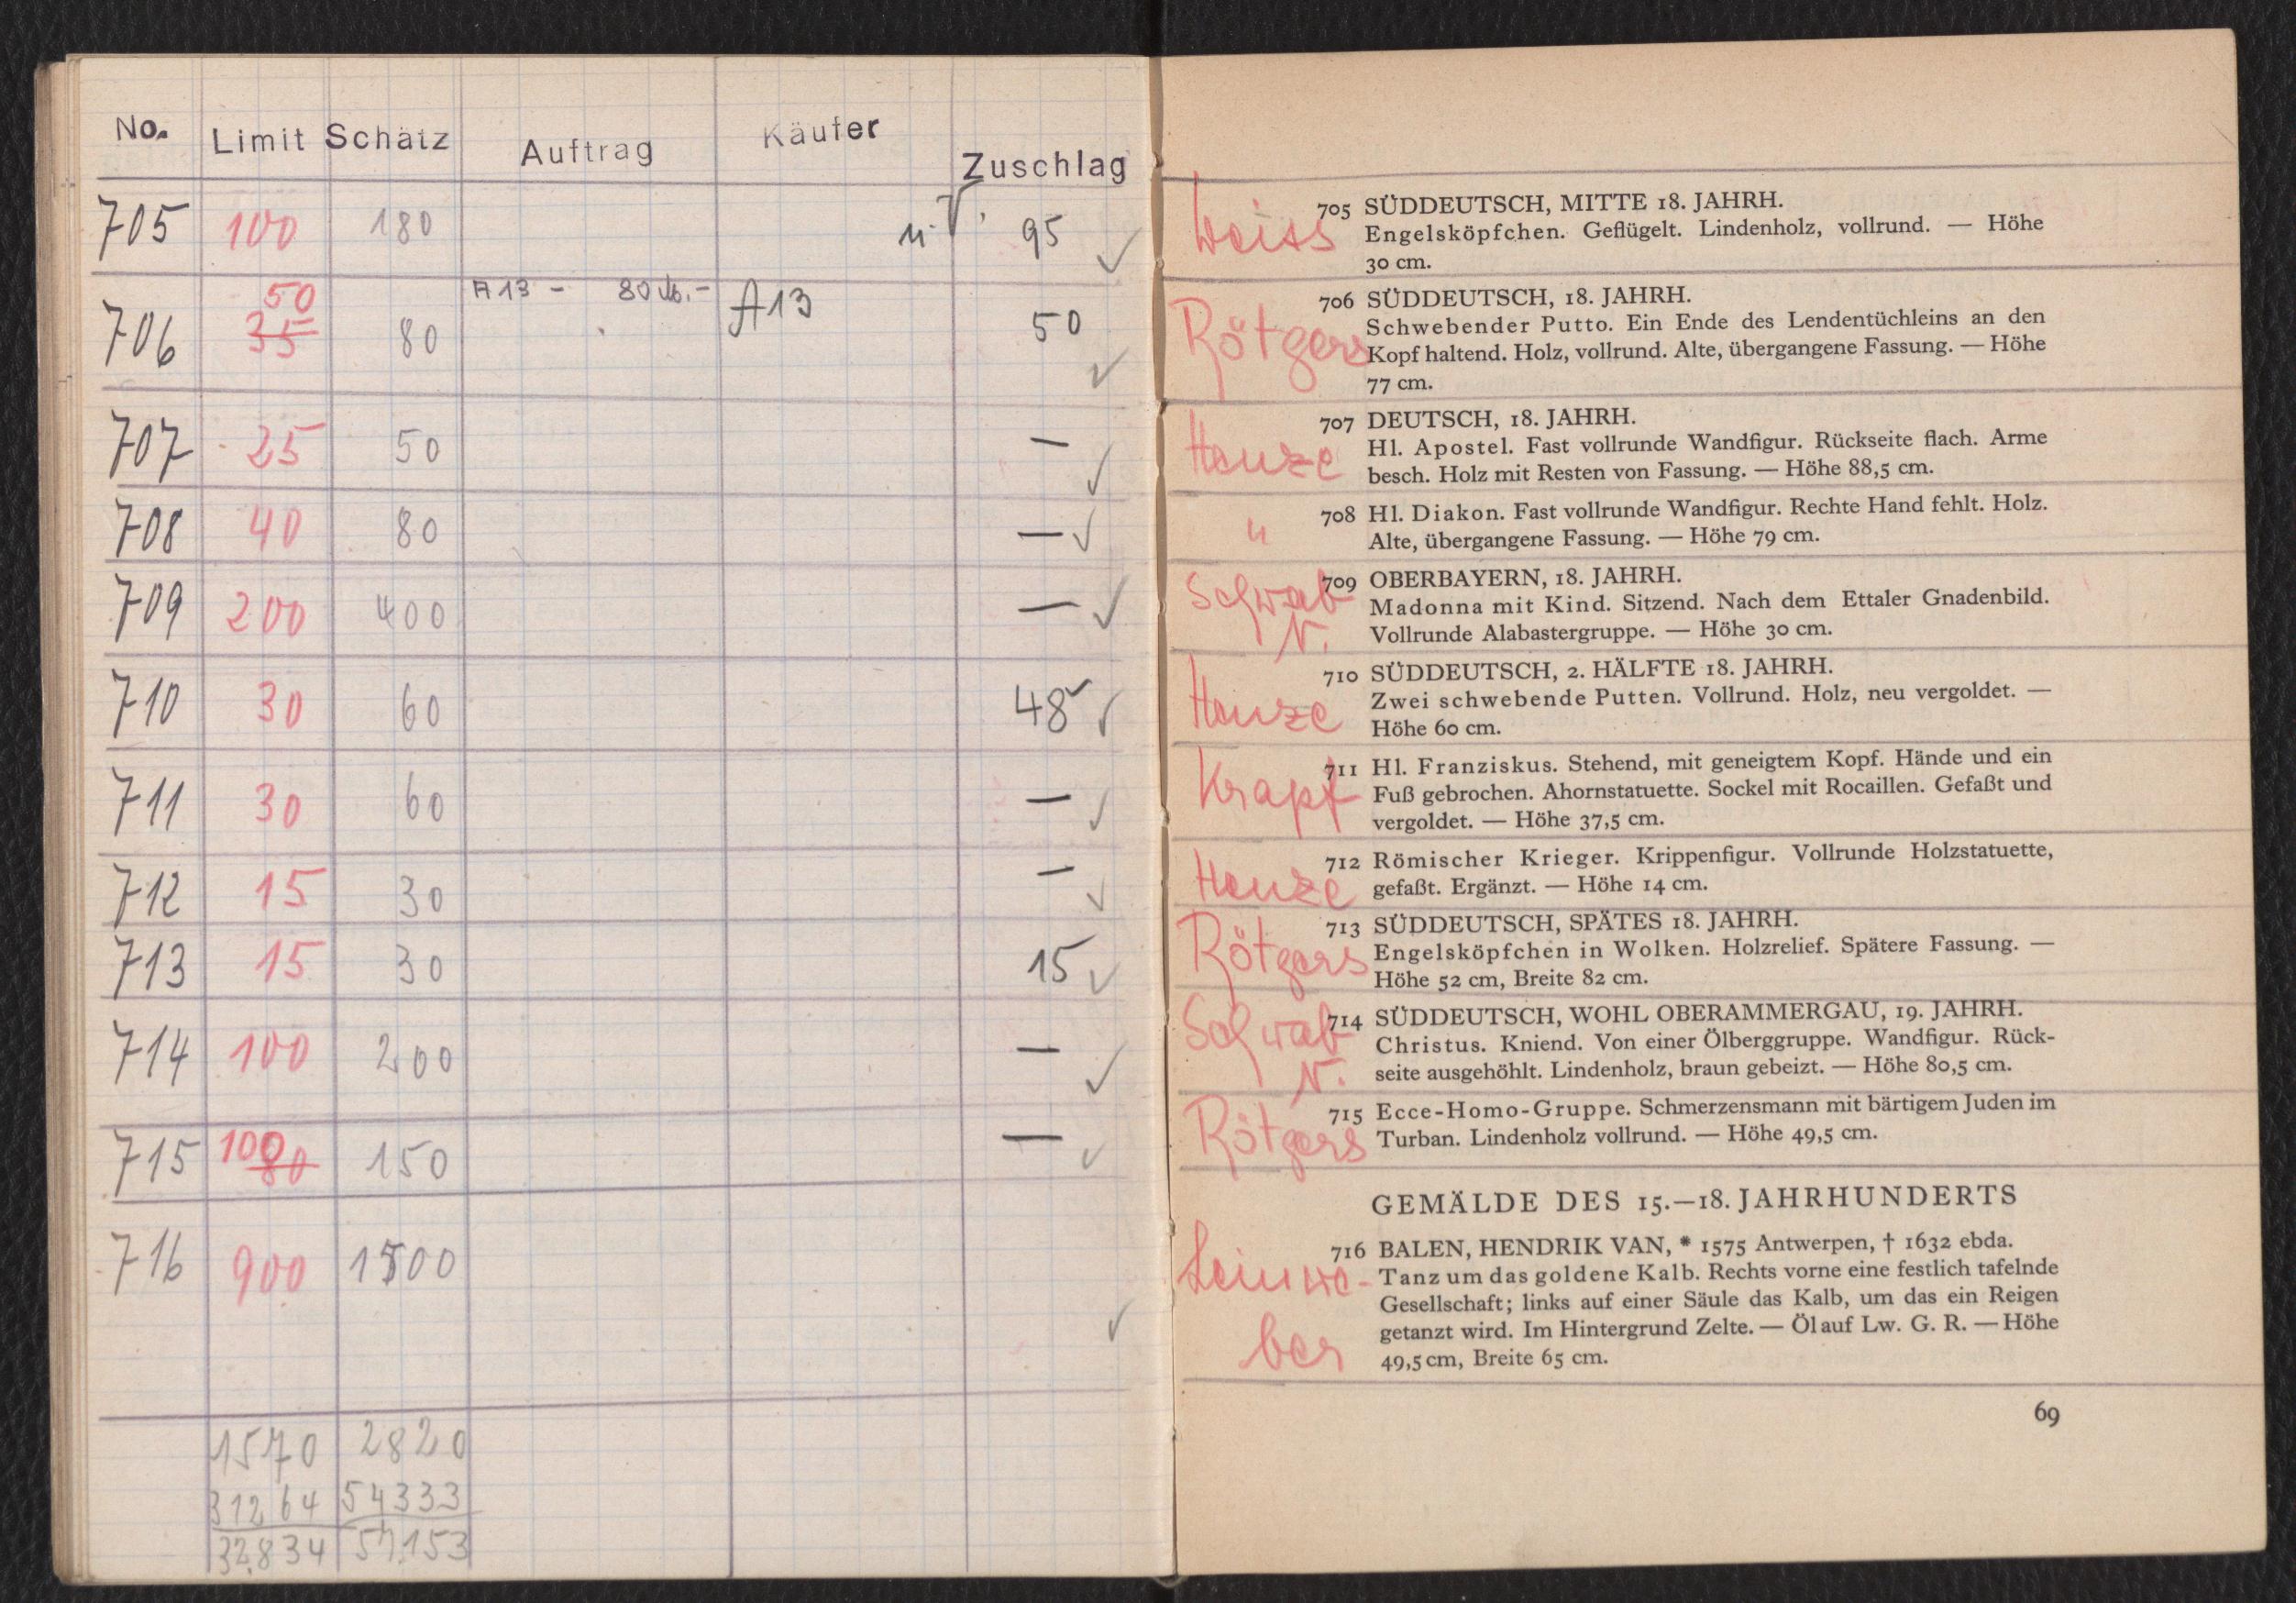 No. Limit Schätz Auftrag Käufer Zuschlag
705 100 180 95 ✓
706 50 35 80 A13 - 80 M.- A13 50 ✓
707 25 50 — ✓
708 40 80 — ✓
709 200 400 — ✓
710 30 60 48 ✓
711 30 60 — ✓
712 15 30 — ✓
713 15 30 15 ✓
714 100 200 — ✓
715 100 80 150 — ✓
716 900 1500 ✓
1570 2820
31264 54333
32.834 57.153
Weiss
705 SÜDDEUTSCH, MITTE 18. JAHRH.
Engelsköpfchen. Geflügelt. Lindenholz, vollrund. — Höhe
30 cm.
Rötgers
706 SÜDDEUTSCH, 18. JAHRH.
Schwebender Putto. Ein Ende des Lendentüchleins an den
Kopf haltend. Holz, vollrund. Alte, übergangene Fassung. — Höhe
77 cm.
Henze
707 DEUTSCH, 18. JAHRH.
Hl. Apostel. Fast vollrunde Wandfigur. Rückseite flach. Arme
besch. Holz mit Resten von Fassung. — Höhe 88,5 cm.
"
708 Hl. Diakon. Fast vollrunde Wandfigur. Rechte Hand fehlt. Holz.
Alte, übergangene Fassung. — Höhe 79 cm.
Schwab
N.
709 OBERBAYERN, 18. JAHRH.
Madonna mit Kind. Sitzend. Nach dem Ettaler Gnadenbild.
Vollrunde Alabastergruppe. — Höhe 30 cm.
Henze
710 SÜDDEUTSCH, 2. HÄLFTE 18. JAHRH.
Zwei schwebende Putten. Vollrund. Holz, neu vergoldet. —
Höhe 60 cm.
Krapf
711 Hl. Franziskus. Stehend, mit geneigtem Kopf. Hände und ein
Fuß gebrochen. Ahornstatuette. Sockel mit Rocaillen. Gefaßt und
vergoldet. — Höhe 37,5 cm.
Henze
712 Römischer Krieger. Krippenfigur. Vollrunde Holzstatuette,
gefaßt. Ergänzt. — Höhe 14 cm.
Rötgers
713 SÜDDEUTSCH, SPÄTES 18. JAHRH.
Engelsköpfchen in Wolken. Holzrelief. Spätere Fassung. —
Höhe 52 cm, Breite 82 cm.
Schwab
N.
714 SÜDDEUTSCH, WOHL OBERAMMERGAU, 19. JAHRH.
Christus. Kniend. Von einer Ölberggruppe. Wandfigur. Rück-
seite ausgehöhlt. Lindenholz, braun gebeizt. — Höhe 80,5 cm.
Rötgers
715 Ecce-Homo-Gruppe. Schmerzensmann mit bärtigem Juden im
Turban. Lindenholz vollrund. — Höhe 49,5 cm.
GEMÄLDE DES 15.—18. JAHRHUNDERTS
Leinwe-
ber
716 BALEN, HENDRIK VAN, * 1575 Antwerpen, † 1632 ebda.
Tanz um das goldene Kalb. Rechts vorne eine festlich tafelnde
Gesellschaft; links auf einer Säule das Kalb, um das ein Reigen
getanzt wird. Im Hintergrund Zelte. — Öl auf Lw. G. R. — Höhe
49,5 cm, Breite 65 cm.
69